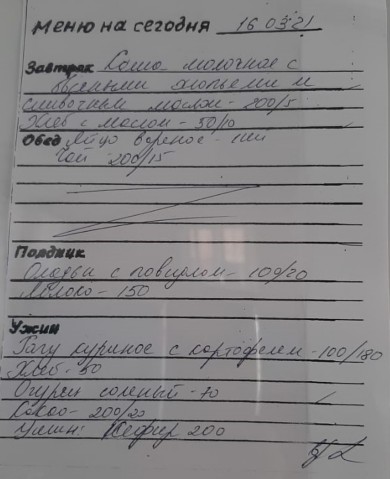 Меню на сегодня 16.03.21
Завтрак Каша молочная с
овсяными хлопьями и
сливочным маслом - 200/5
Хлеб с маслом - 50/10
Обед Яйцо вареное -
Чай 200/15
Полдник
Оладьи с повидлом - 100/20
Яблоко - 150
Ужин
Рагу куриное с картофелем - 100/180
Хлеб - 50
Огурец соленый - 70
Какао - 200/20
Ужин: Кефир 200